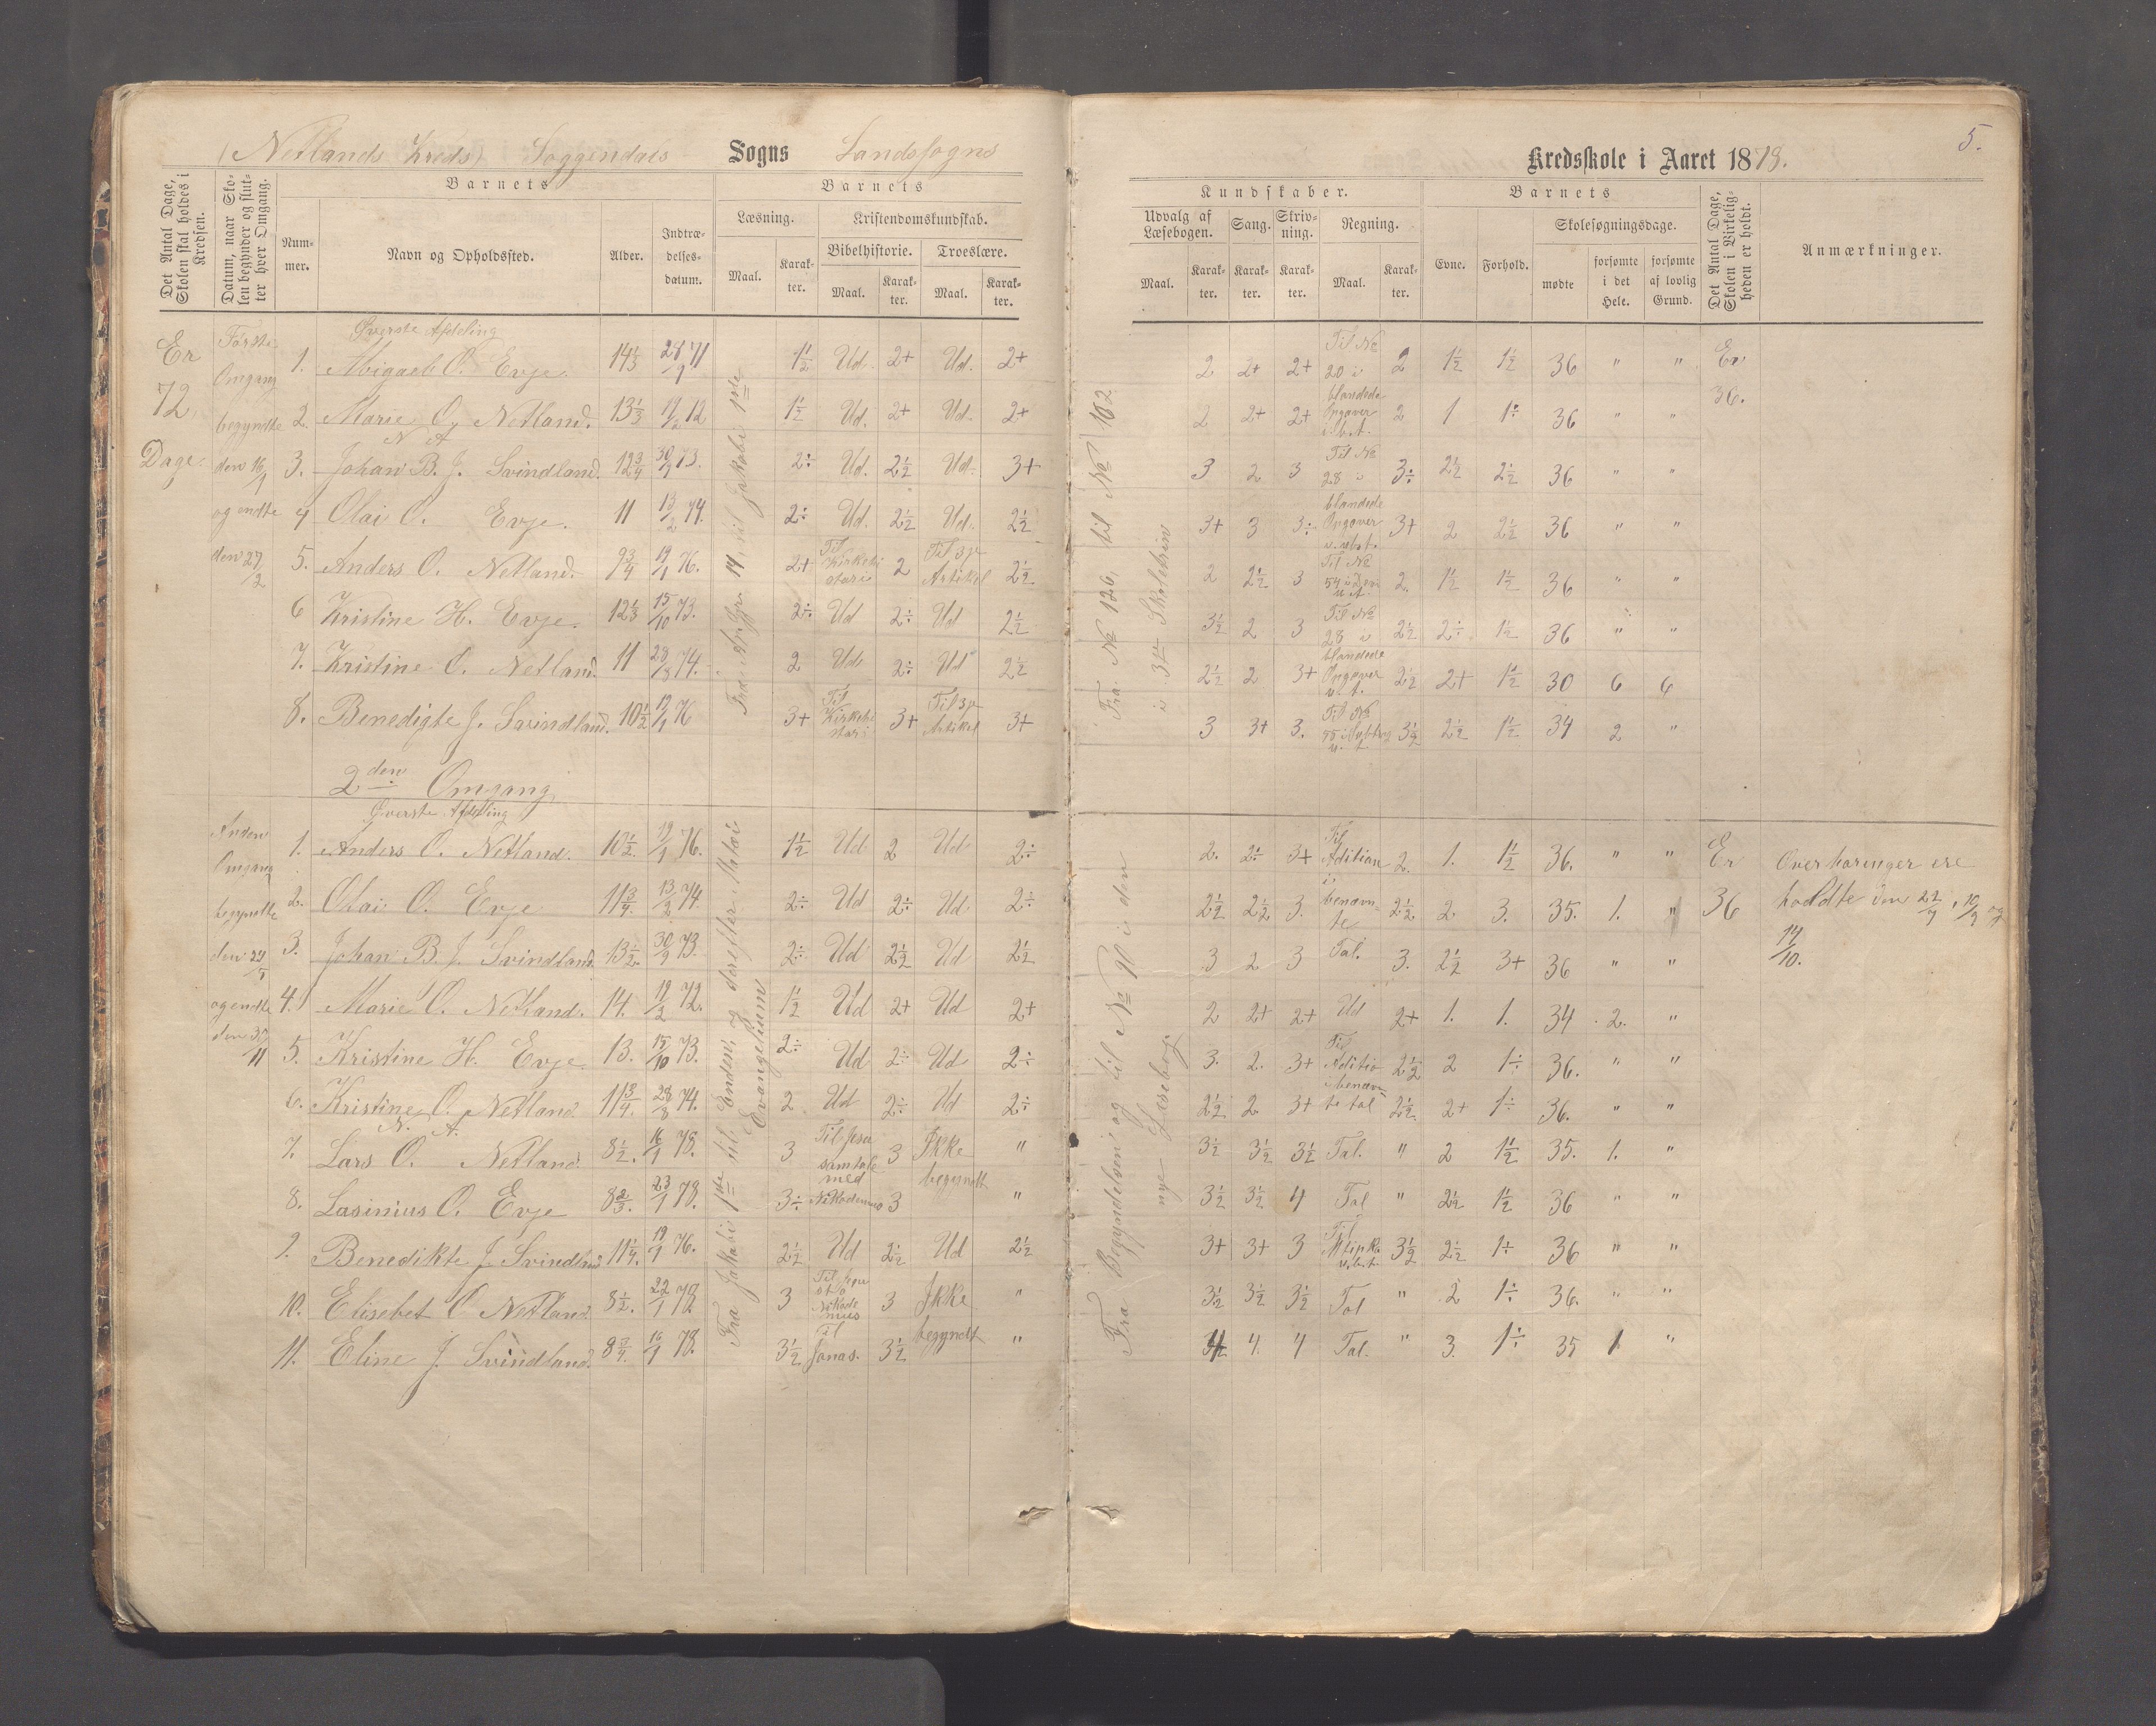 (Netlands Kreds) Soggendals Sogns Landssogns
Kredsskole i Aaret 1878.
5.
Det Antal Dage, Skolen skal holdes i Kredsen.
Datum, naar Skolen begynder og slutter hver Omgang.
Barnets
Nummer.
Navn og Opholdssted.
Alder.
Indtrædelsesdatum.
Barnets
Læsning.
Maal.
Karakter.
Kristendomskundskab.
Bibelhistorie.
Troeslære.
Maal.
Karakter.
Maal.
Karakter.
Kundskaber.
Udvalg af Læsebogen.
Maal.
Karakter.
Sang.
Karakter.
Skrivning.
Karakter.
Regning.
Maal.
Karakter.
Barnets
Evne.
Forhold.
Skolesøgningsdage.
mødte
forsømte i det Hele.
forsømte af lovlig Grund.
Det Antal Dage, Skolen i Virkeligheden er holdt.
Anmærkninger.
Er 72 Dage.
Første Omgang begyndte den 16/1 og endte den 27/2
Øverste Afdeling
1. Abigael O. Evje 14 1/3 28/1 71 1 1/2 Ud. 2+ Ud. 2+ 2 2+ 2+ 2 1 1/2 1 1/2 36 " "
2. Marie O. Netland. 13 1/3 19/2 72 1 1/2 Ud. 2+ Ud. 2+ 2 2+ 2+ 2 1 1÷ 36 " "
N. A.
3. Johan B. J. Svindland. 12 3/4 30/9 73. 2÷ Ud. 2 1/2 Ud. 3+ 3 2 3 3÷ 2 1/2 2 1/2 36 " "
4 Olai O. Evje. 11 13/2 74. 2÷ Ud. 2 1/2 Ud. 2 1/2 3+ 3 3÷ 3+ 2 2 1/2 36 " "
5. Anders O. Netland. 9 3/4 19/1 76. 2+ Til Kirkehistorie 2 Til 3je Artikel 2 1/2 2 2 1/2 3 2 1 1/2 1 1/2 36 " "
6 Kristine H. Evje. 12 1/3 15/10 73. 2÷ Ud 2÷ Ud 2 1/2 3 1/2 2 3 2 1/2 2÷ 1 1/2 36 " "
7. Kristine O. Netland. 11 28/8 74. 2 Ud 2÷ Ud 2 1/2 2 1/2 2 3+ 2 1/2 2+ 1 1/2 30 6 6
8. Benedigte J. Svindland. 10 1/2 19/1 76 3+ Til Kirkehistori 3+ Til 3je Artikel 3+ 3 3+ 3. 3 1/2 2 1/2 1 1/2 34 2 "
til Jakobi 1ste
Fra No 126, til No 162
i 3die Skoletrin
Til No 20 i blandede Opgaver
Til No 28 i blandede Opgaver
Til No 28 i blandede Opgaver
Er 36.
2den Omgang
Øverste Afdeling
Anden Omgang begyndte den 24/7 og endte den 30/11
1. Anders O. Netland. 10 1/2. 19/1 76. 1 1/2 Ud 2 Ud 2÷ 2. 2÷ 3+ 2. 1. 1 1/2 36. " "
2. Olai O. Evje 11 3/4. 13/2 74 2÷ Ud 2÷ Ud 2÷ 2 1/2 2 1/2 3. 2 1/2 2. 3. 35. 1. "
3. Johan B. J. Svindland. 13 1/2. 30/9 73. 2÷ Ud 2 1/2 Ud 2 1/2 3 2 3 3. 2 1/2 3+ 36 " "
4. Marie O. Netland. 14. 19/2 72. 1 1/2 Ud 2+ Ud 2+ 2 2+ 2+ Ud 2+ 1. 1. 34 2. "
5. Kristine H. Evje. 13. 15/10 73. 2÷ Ud 2÷ Ud 2÷ 3. 2. 3+ 2 1/2 2 1÷ 36. " "
6. Kristine O. Netland. 11 3/4. 28/8 74. 2 Ud 2÷ Ud 2÷ 2 1/2 2 3+ 2 1/2 2+ 1÷ 36. " "
N. A.
7. Lars O. Netland. 8 1/2. 16/1 78. 3 Til Jesu samtale med 3 Ikke begyndt " 3 1/2 3 1/2 3 1/2 Tal. " 2 1 1/2 35. 1. "
8. Lasinius O. Evje 8 2/3. 23/1 78. 3÷ Nikodemus 3 " 3 1/2 3 1/2 4 Tal " 2 1/2 1 1/2 36 " "
9. Benedikte J. Svindland 11 1/4. 19/1 76. 2 1/2 Ud 2 1/2 Ud 2 1/2 3+ 3+ 3 3 1/2 2 1/2 1÷ 36 " "
10. Elisebet O Netland. 8 1/2. 22/1 78 3 Nikodemus 3 Ikke begyndt " 3 1/2 3 1/2 3 1/2 Tal " 2 1÷ 36. " "
11. Eline J. Svindland. 8 3/4. 16/1 78. 3 1/2 Til Jonas. 3 1/2 " 4 4. 4 Tal. " 3. 1÷ 35 1 "
Fra Jakobi 1ste til Enden, og derefter Matæi Evangelium
Fra Begyndelsen og til No 90 i den nye Læsebog.
Til Adition i benævnte Tal.
Er 36
Overhøringer ere holdte den 22/7, 10/9 og 14/10.